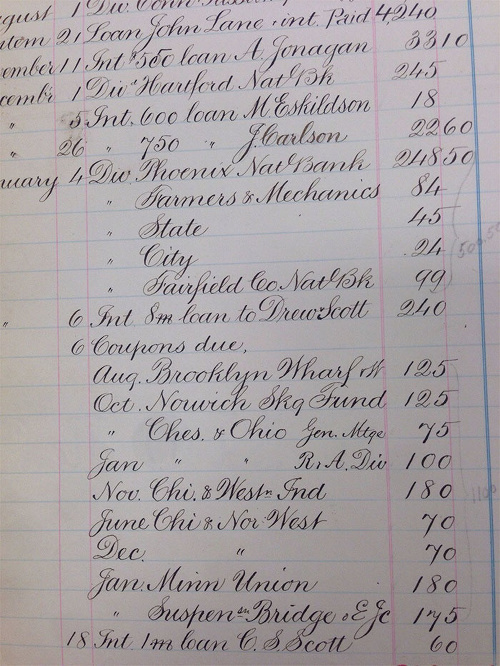 gust 1 Div. Conn.
tem 21 Loan John Lane & int. Paid 4,240
ember 11 Int $550 loan A. Jonagan 33 10
cemb' 1 Div. Hartford Nat'l Bk 245
" 5 Int. 600 loan M. Eskildson 18
" 26 " 750 " J. Carlson 22 60
nuary 4 Div. Phoenix Nat'l Bank 248 50
" Farmers & Mechanics 84
" State 45
" City 24
" Fairfield Co. Nat'l Bk 99
" 6 Int. 8m loan to Drew & Scott 240
6 Coupons due,
Aug. Brooklyn Wharf & W 125
Oct. Norwich Skg Fund 125
" Ches. & Ohio Gen. Mtge 75
Jan " " R. & A. Div 100
Nov. Chi. & Westn Ind 180
June Chi & Nor West 70
Dec. " 70
Jan. Minn Union 180
" Suspensn Bridge & E Jc 175
18 Int 1m loan C. S. Scott 60